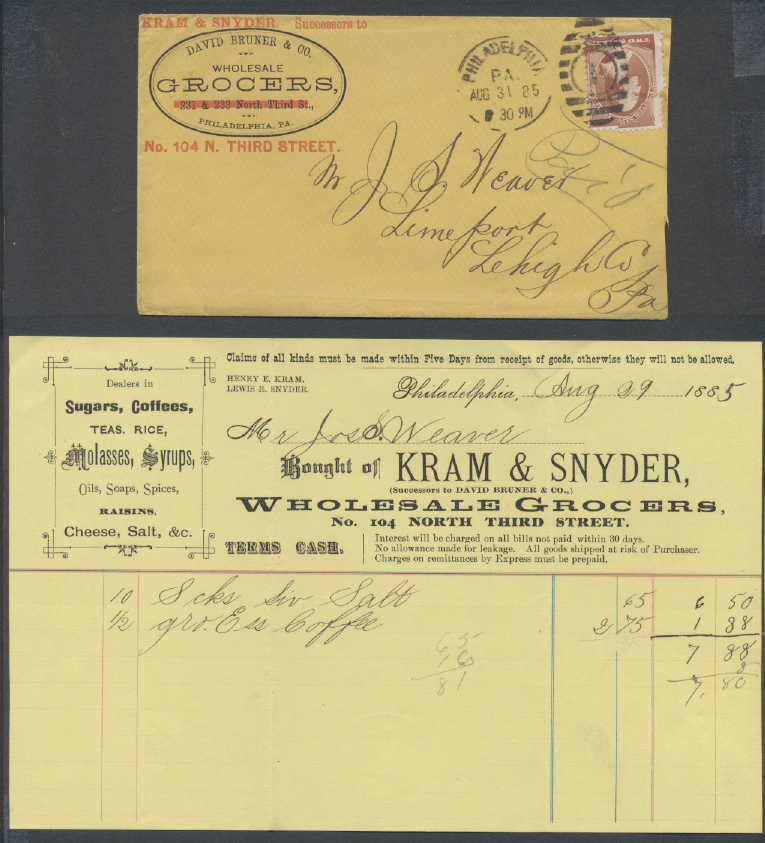 KRAM & SNYDER, Successors to
DAVID BRUNER & CO.
WHOLESALE
GROCERS,
231 & 233 North Third St.,
PHILADELPHIA, PA.
No. 104 N. THIRD STREET.
PHILADELPHIA
PA.
AUG 31 85
30 PM
Mr J. S. Weaver
Limeport
Lehigh Co
Pa
Claims of all kinds must be made within Five Days from receipt of goods, otherwise they will not be allowed.
HENRY E. KRAM.
LEWIS R. SNYDER.
Philadelphia, Aug 29 1885
Mr Jos S. Weaver
Bought of KRAM & SNYDER,
(Successors to DAVID BRUNER & CO.,)
WHOLESALE GROCERS,
No. 104 NORTH THIRD STREET.
TERMS CASH.
Interest will be charged on all bills not paid within 30 days.
No allowance made for leakage. All goods shipped at risk of Purchaser.
Charges on remittances by Express must be prepaid.
Dealers in
Sugars, Coffees,
TEAS. RICE,
Molasses, Syrups,
Oils, Soaps, Spices,
RAISINS,
Cheese, Salt, &c.
10 Scks Liv Salt 65 6 50
1/2 gro. Ess Coffee 2 75 1 38
7 88
8
7,80
65
16
81